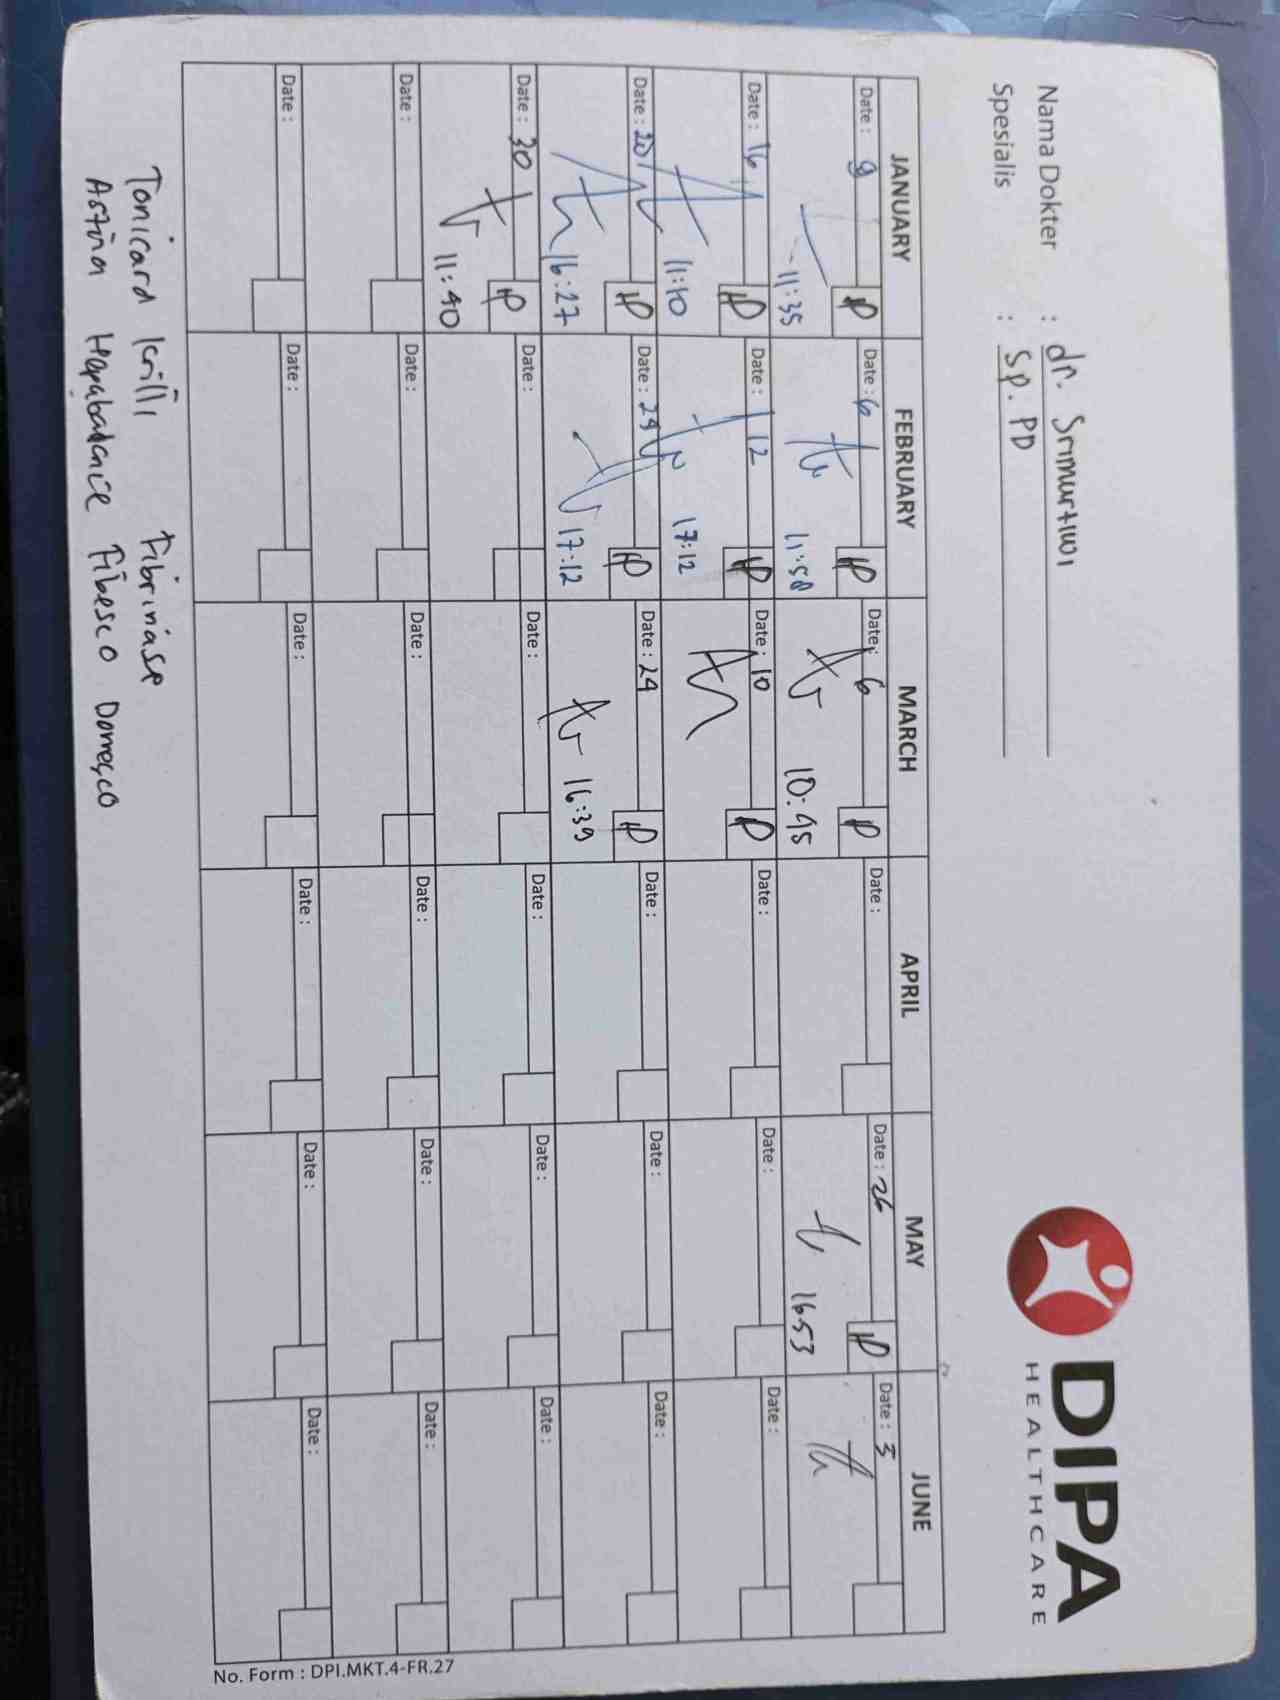 Nama Dokter : dr. Srimurtiwi
Spesialis : Sp. PD
DIPA
HEALTHCARE
JANUARY FEBRUARY MARCH APRIL MAY JUNE
Date: Date: 6 Date: 6 Date: Date: 26 Date: 3
11:35 11:58 10:45 1653
Date: 16 Date: 12 Date: 10 Date: Date: Date:
11:10 17:12
Date: 20 Date: Date: 24 Date: Date: Date:
16:27 17:12 16:39
Date: 30 Date: Date: Date: Date: Date:
11:40
Date: Date: Date: Date: Date: Date:
Date: Date: Date: Date: Date: Date:
No. Form : DPI.MKT.4-FR.27
Tonicard Krilli Fibrinase
Astina Fibesco